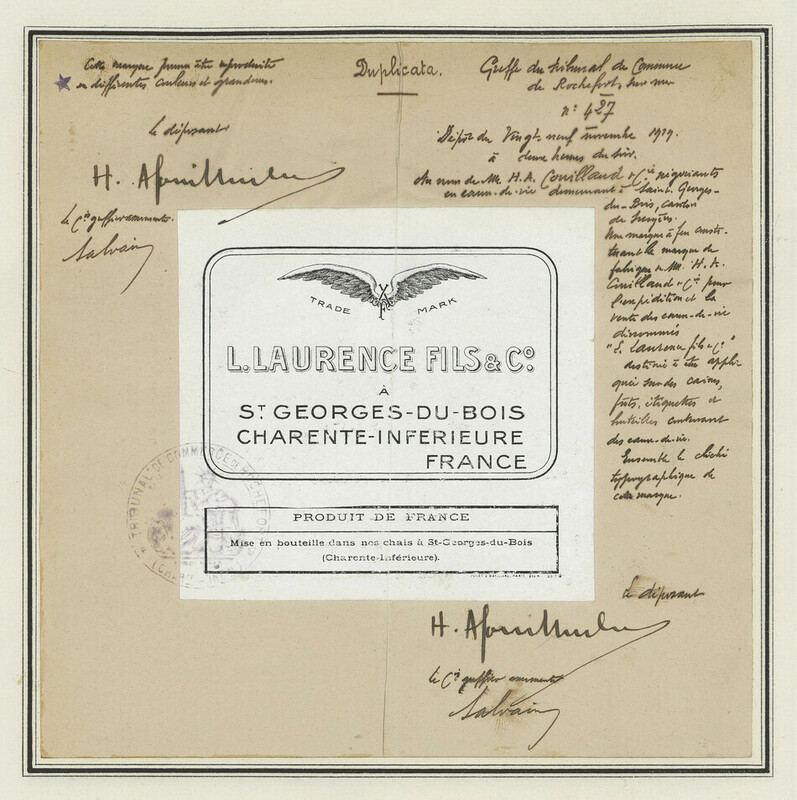 Cette marque pourra être reproduite
en différentes couleurs et grandeurs.
le déposant
le Cis greffier assermenté.
Salvain
Duplicata.
Greffe du tribunal de Commerce
de Rochefort sur mer
n° 427
Dépôt du Vingt-neuf novembre 1919.
à deux heures du soir.
Au nom de M. H. A. Couillaud & Cie négociants
en eaux-de-vie demeurant à Saint Georges-
du-Bois, canton
de Surgères.
Une marque à feu
la marque de
fabrique de M. H. A.
Couillaud & Cie pour
l'expédition et la
vente des eaux-de-vie
dénommés
"L. Laurence fils & Co"
destinée à être appli-
quée sur des caisses,
fûts, étiquettes et
bouteilles contenant
des eaux-de-vie.
Ensemble le cliché
typographique de
cette marque.
TRADE MARK
L. LAURENCE FILS & Co.
À
ST GEORGES-DU-BOIS
CHARENTE-INFERIEURE
FRANCE
PRODUIT DE FRANCE
Mise en bouteille dans nos chais à St-Georges-du-Bois
(Charente-Inférieure).
TRIBUNAL DE COMMERCE DE ROCHEFORT
le déposant
le Cis greffier assermenté
Salvain